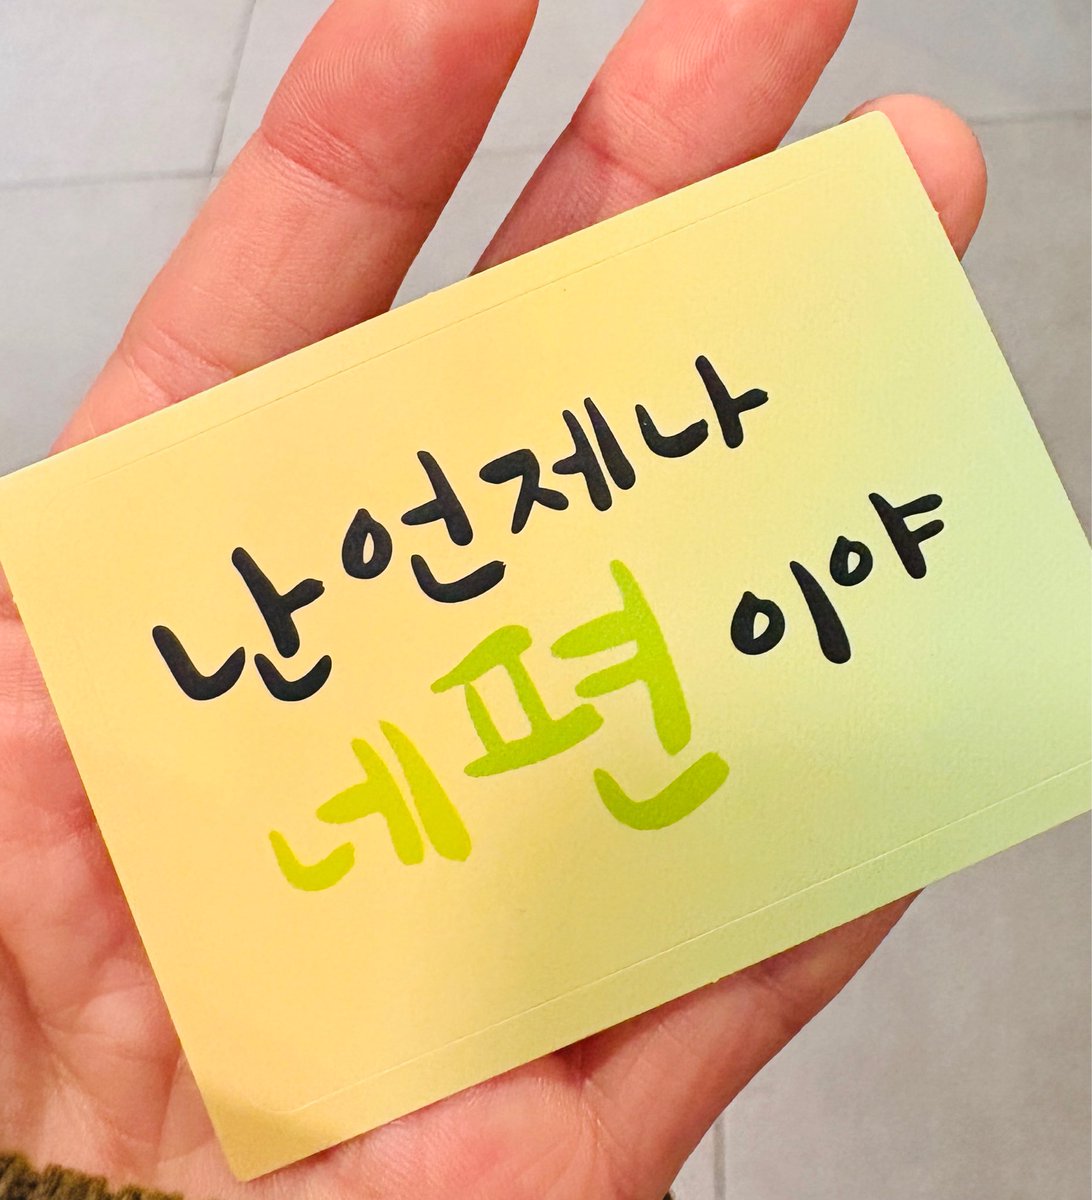 난 언제나
네 편 이야